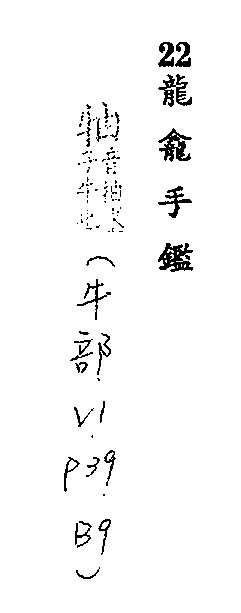 22龍龕手鑑
牰音袖 牛也（牛部.V1.P39.B9）